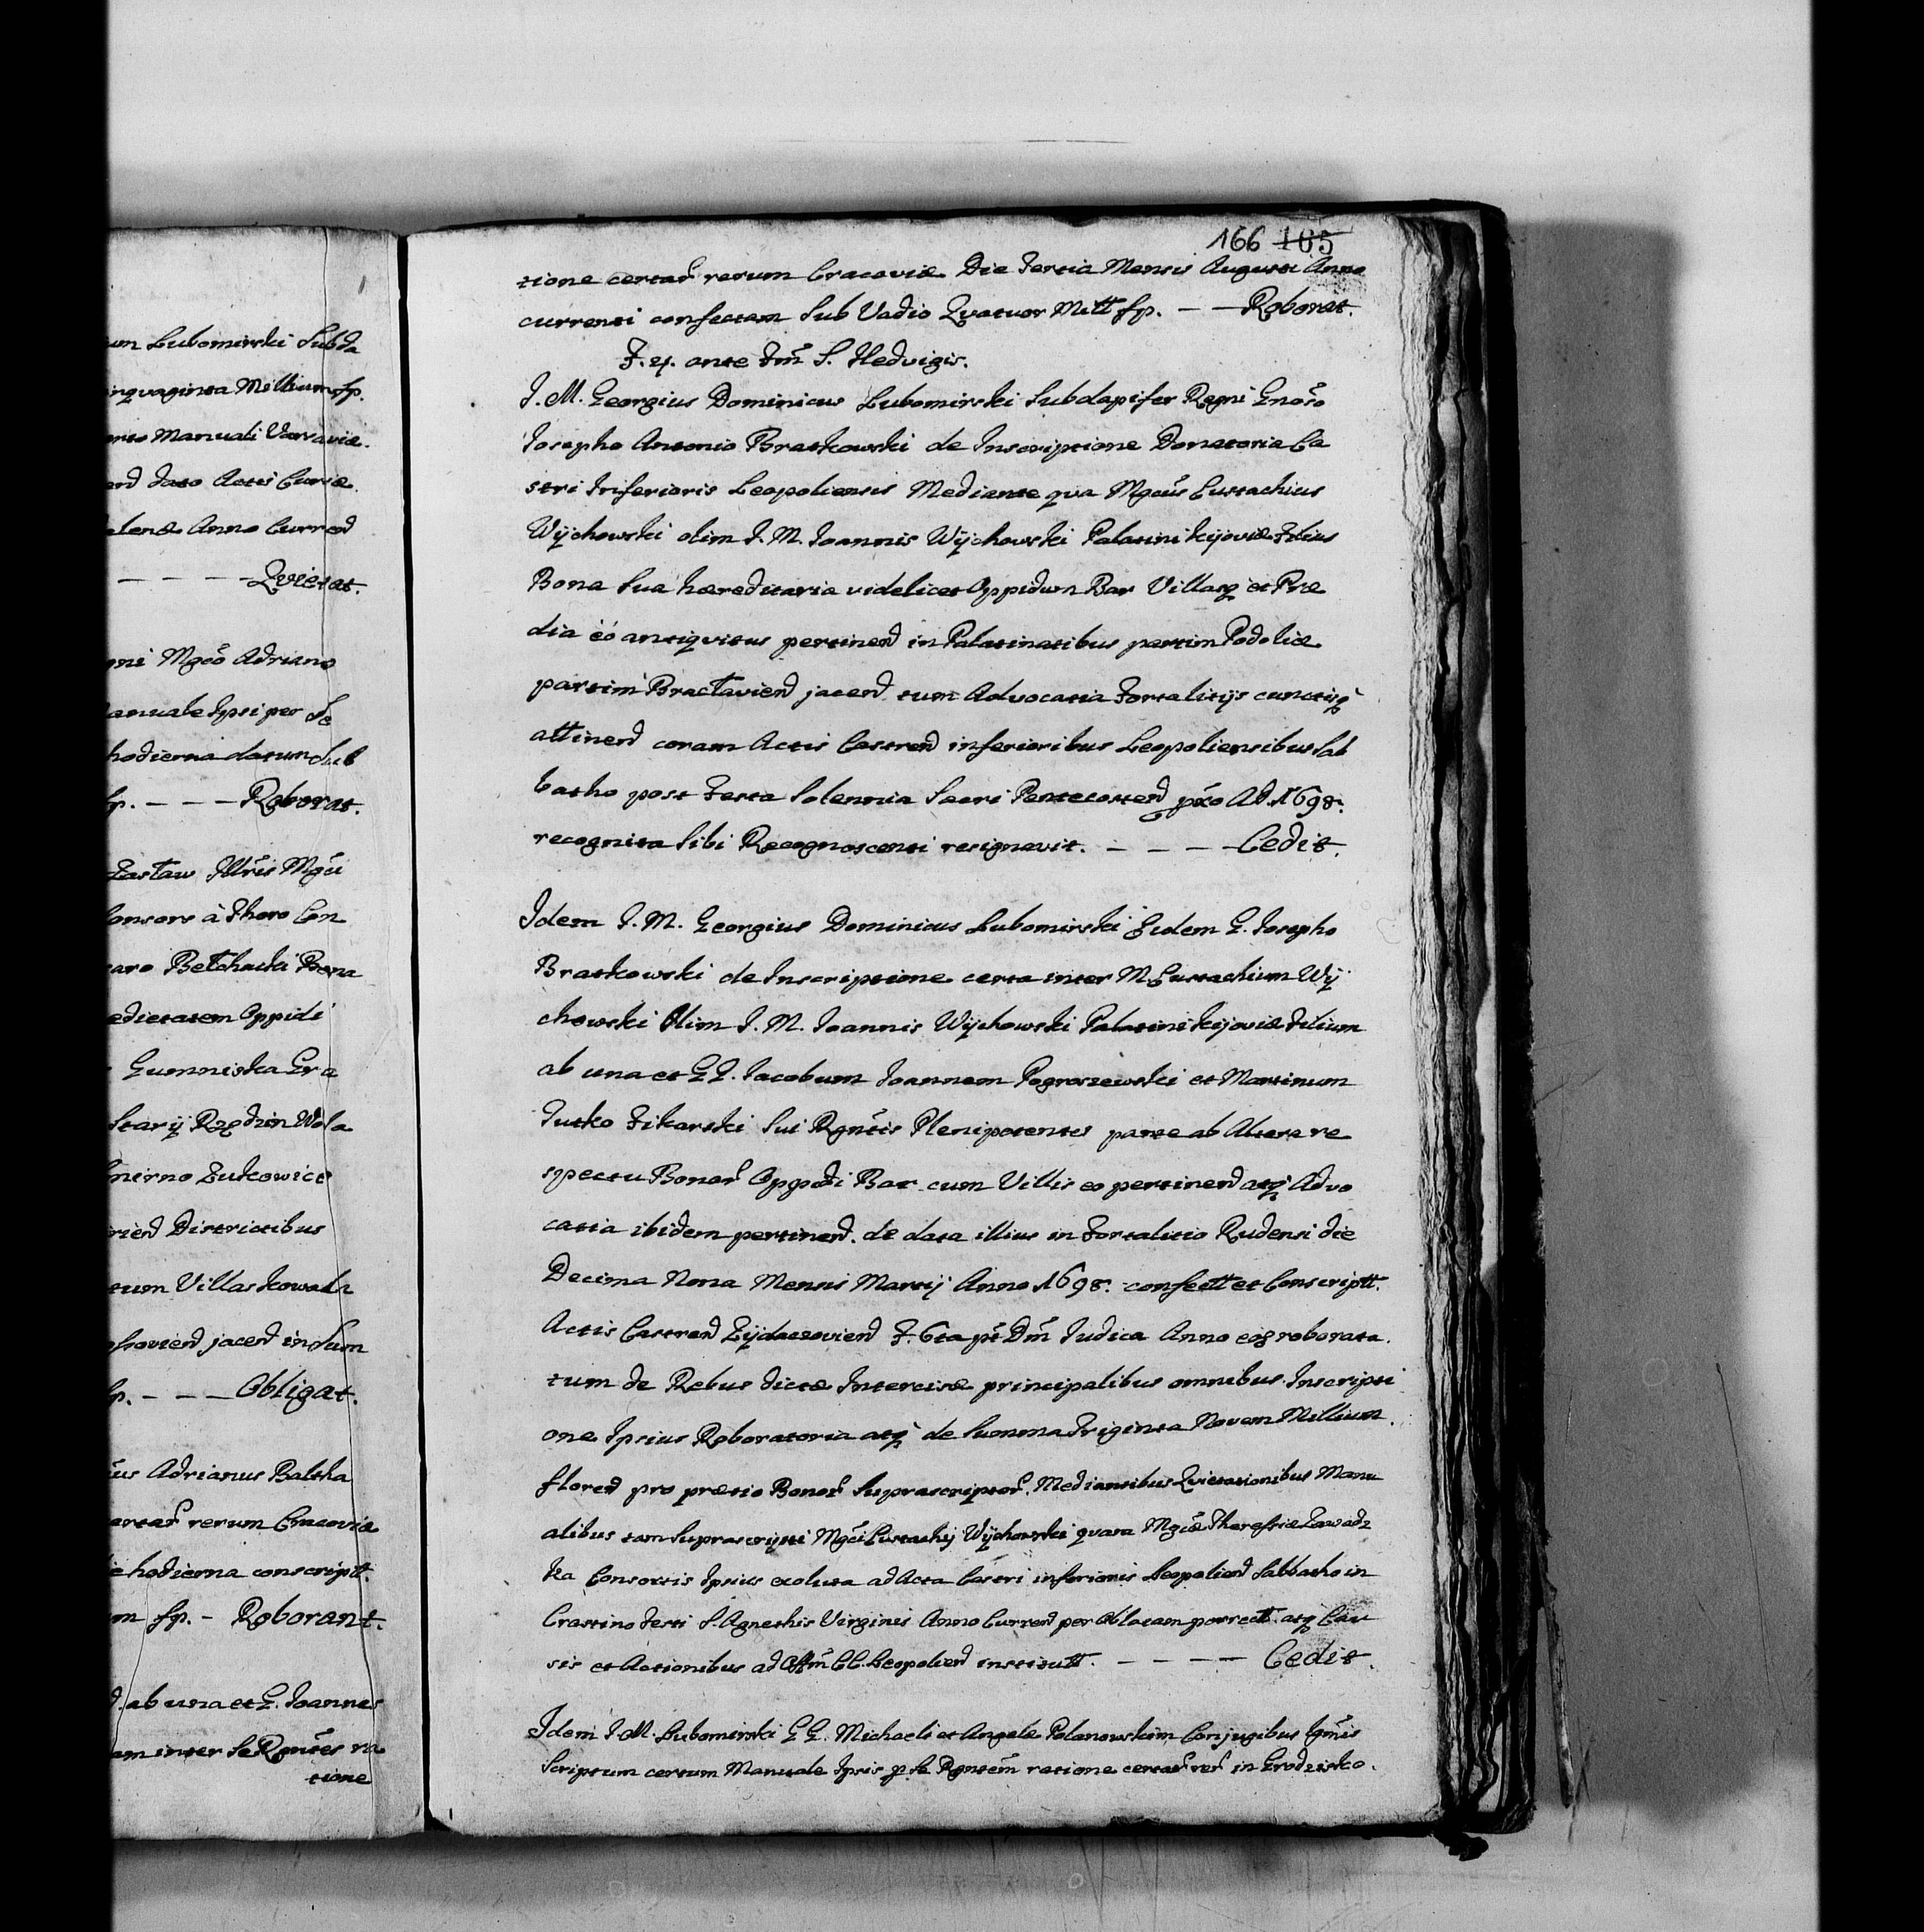 um Lubomirski Subda
inqvaginta Millium fp.
Manuali Varsaviæ.
dato Actis Curiæ
Anno Curren̄
– – – – Qvietat.
Mgco Adriano
anuale Ipsi per Se
hodierna datum Sub
fp. – – – Roborat.
Zasław Illris Mgci
Consors à Thoro Con
Bełchacki Bona
edietatem Oppidi
Gumniska Gra
Stary Rzędzin Wola
Zukowice
Districtibus
tum Villas Kowale
jacen̄ in Sum
fp. – – – Obligat.
Adrianus Baltha
certar̄ rerum Cracoviæ
ie hodierna conscript.
m fp. – Roborant.
ab una et G. Joannes
am inter Se Rgntes ra
tione
166 165
tione certar̄ rerum Cracoviæ Die Tertia Mensis Augusti Anno
currenti confectam Sub Vadio Qvatuor Mill fp. – – Roborat.
F. 4. ante Fm̄ S. Hedvigis.
I. M. Georgius Dominicus Lubomirski Subdapifer Regni Gnoso
Josepho Antonio Bratkowski de Inscriptione Donatoria Ca
stri Inferioris Leopoliensis Mediante qva Mgcus Eustachius
Wÿchowski olim I. M. Joannis Wÿchowski Palatini Kijoviæ Filius
Bona Sua hæreditaria videlicet Oppidum Bar Villasq et Præ
dia eó antiqvitus pertinen̄ in Palatinatibus partim Podoliæ
partim Bracłavien̄ jacen̄ tum Advocatia Fortalitijs cunctisq
attinen̄ coram Actis Castren̄ inferioribus Leopoliensibus Sab
batho post Festa Solennia Sacri Pentecosten̄ pxo AD. 1698.
recognita Sibi Recognoscenti resignavit. – – – – Cedit.
Idem I. M. Georgius Dominicus Lubomirski Eidem G. Josepho
Bratkowski de Inscriptione certa inter M. Eustachium Wÿ
chowski Olim I. M. Joannis Wÿchowski Palatini Kijoviæ Filium
ab una et GG. Jacobum Joannem Pogroszewski et Martinum
Jutko Zikarski Sui Rgntis Plenipotentes parte ab Altera re
spectu Bonor̄ Oppidi Bar cum Villis eo pertinen̄ atq Advo
catia ibidem pertinen̄. de data illius in Fortalitio Rudensi die
Decima Nona Mensis Martij Anno 1698. confectt et Conscriptt.
Actis Castren̄ Zÿdaczovien̄ F. 6ta pt Dm̄ Judica Anno eog roborata.
tum de Rebus dictæ Intercisæ principalibus omnibus Inscripti
one Ipsius Roboratoria atq de Summa Triginta Novem Millium
floren̄ pro prætio Bonor̄ Suprascriptor̄. Mediantibus Qvietationibus Manu
alibus tam Suprascripti Mgci Eustachij Wÿchowski qvam Mgcæ Theressiæ Zawadz
ka Consortis Ipsius exoluta ad Acta Castri inferioris Leopolien̄ Sabbatho in
Crastino Festi S. Agnethis Virginis Anno Curren̄ per Oblatam porrectt. atq Cau
sis et Actionibus ad Offm̄ CC. Leopolien̄ institutt. – – – – Cedit.
Idem I. M. Lubomirski GG. Michaeli et Angelæ Polanowskim Conjugibus
Scriptum certum Manuale Ipsis p Se Rgntem ratione certar̄ rer̄ in Grodzisko.